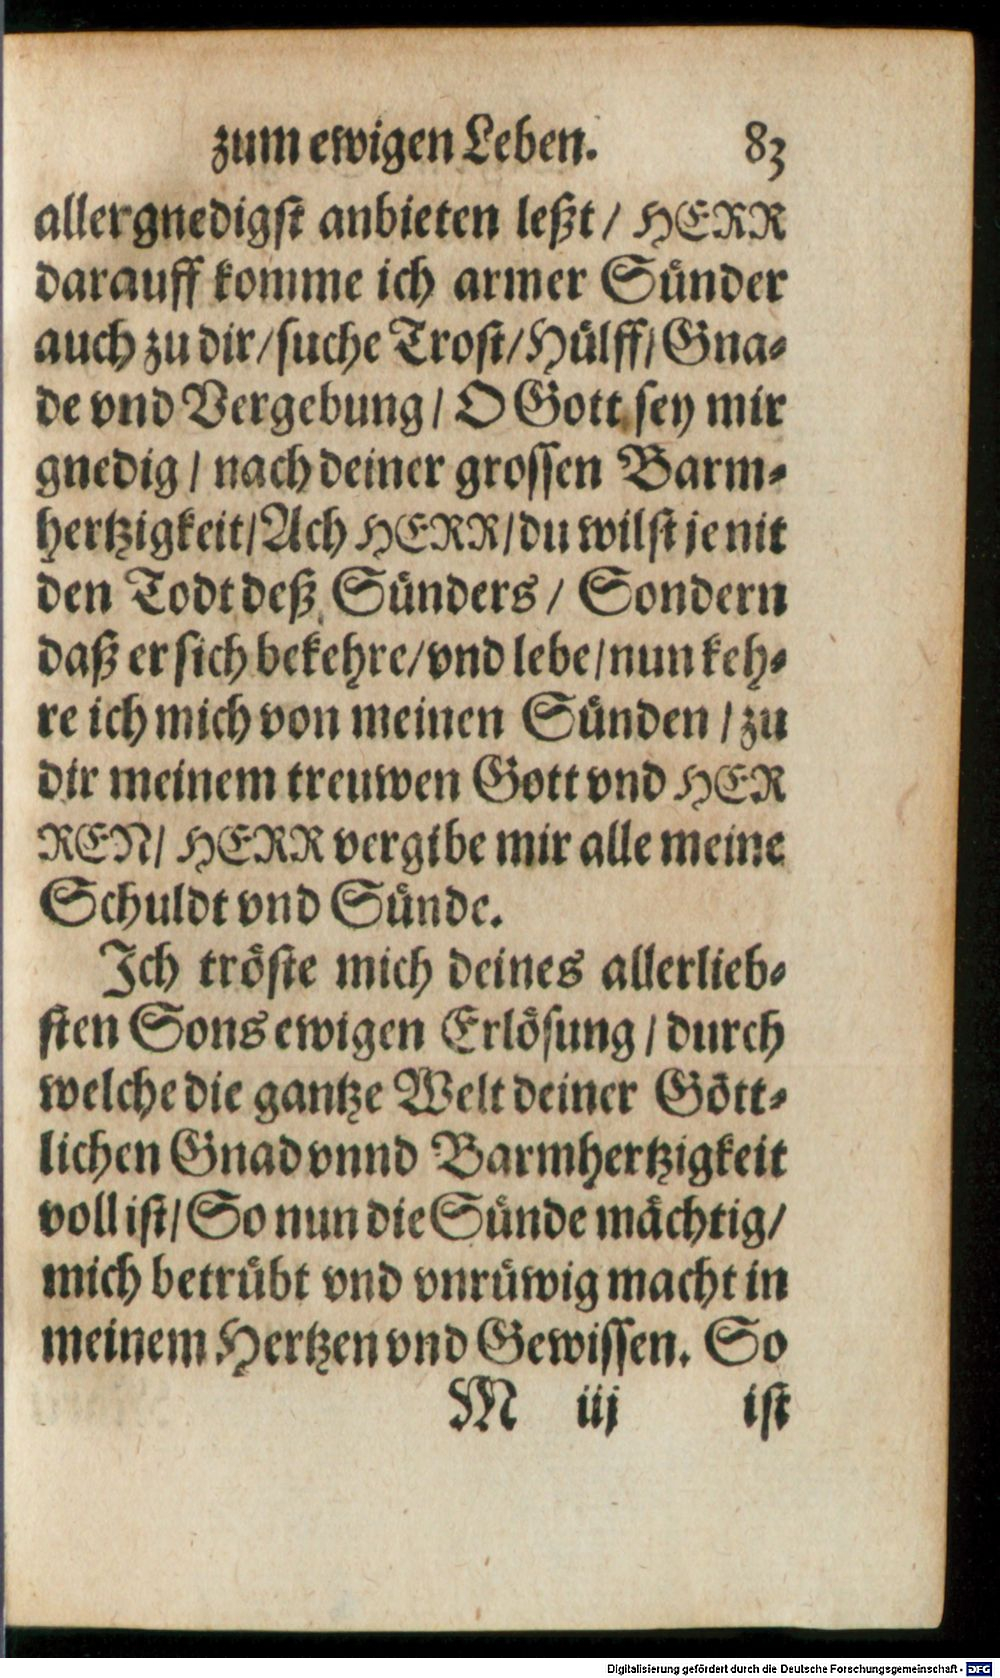 zum ewigen Leben. 83
allergnedigst anbieten leßt / HERR
darauff komme ich armer Sünder
auch zu dir / suche Trost / Hülff / Gna⸗
de vnd Vergebung / O Gott sey mir
gnedig / nach deiner grossen Barm⸗
hertzigkeit / Ach HERR / du wilst je nit
den Todt deß Sünders / Sondern
daß er sich bekehre / vnd lebe / nun keh⸗
re ich mich von meinen Sünden / zu
dir meinem treuwen Gott vnd HER
REN / HERR vergibe mir alle meine
Schuldt vnd Sünde.
Ich tröste mich deines allerlieb⸗
sten Sons ewigen Erlösung / durch
welche die gantze Welt deiner Gött⸗
lichen Gnad vnnd Barmhertzigkeit
voll ist / So nun die Sünde mächtig /
mich betrübt vnd vnrüwig macht in
meinem Hertzen vnd Gewissen. So
M iij ist
Digitalisierung gefördert durch die Deutsche Forschungsgemeinschaft - DFG